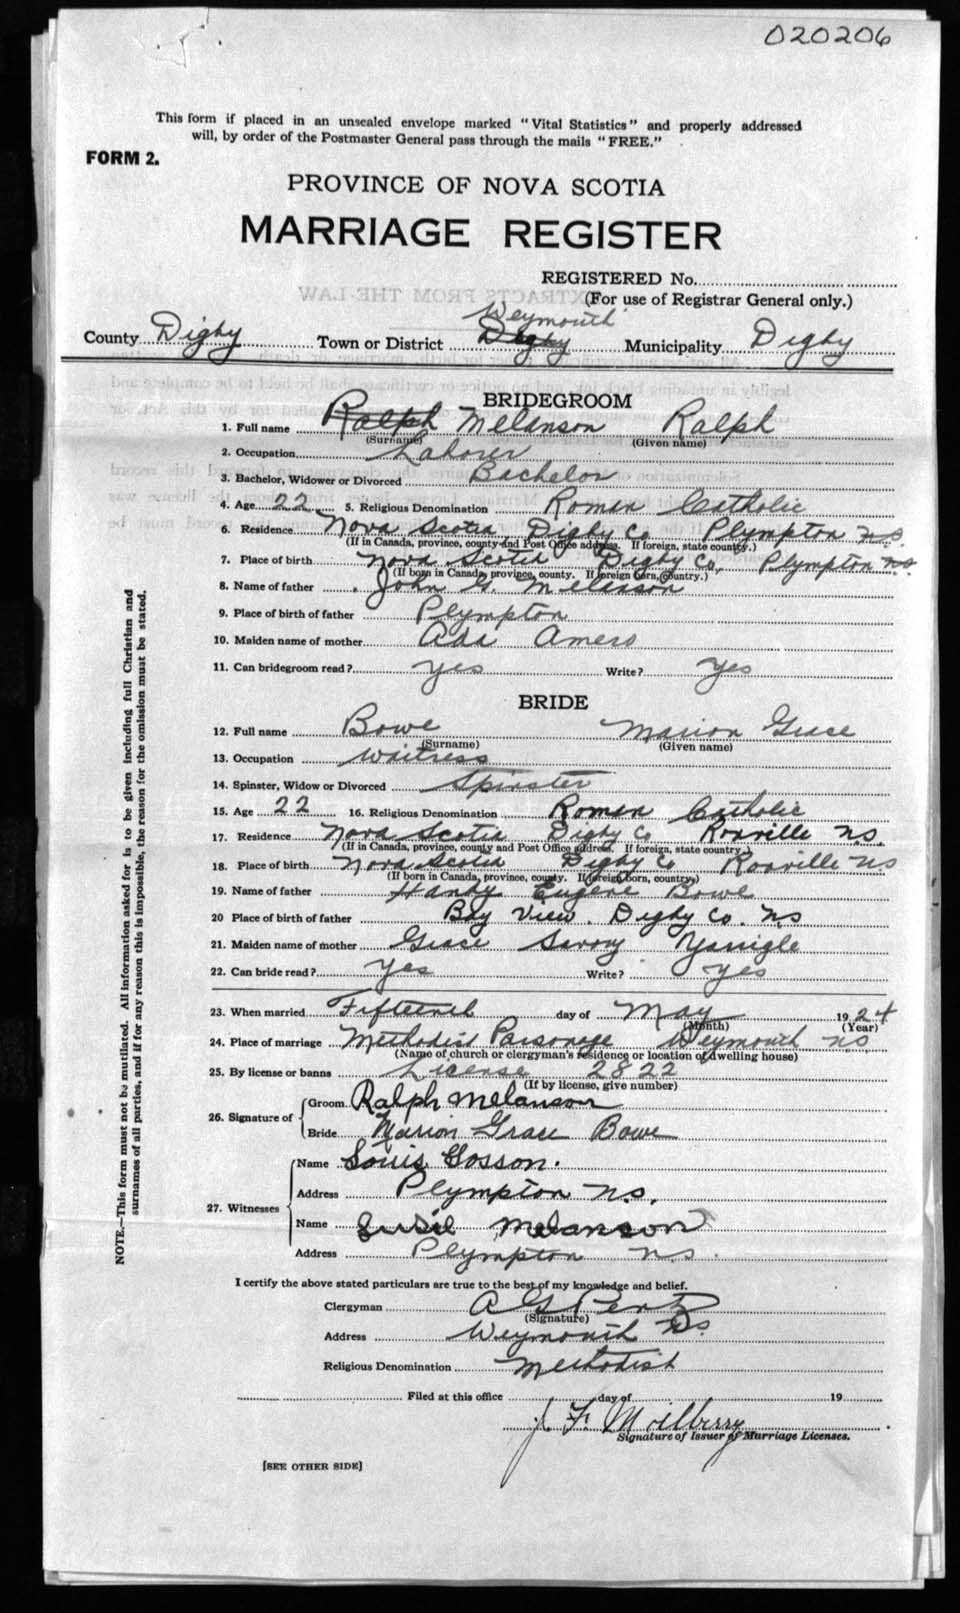 020206
This form if placed in an unsealed envelope marked "Vital Statistics" and properly addressed
will, by order of the Postmaster General pass through the mails "FREE."
FORM 2.
PROVINCE OF NOVA SCOTIA
MARRIAGE REGISTER
REGISTERED No.
(For use of Registrar General only.)
EXTRACTS FROM THE LAW
Weymouth
County Digby Town or District Digby Municipality Digby
BRIDEGROOM
1. Full name Ralph Melanson Ralph
(Surname) (Given name)
2. Occupation Laborer
3. Bachelor, Widower or Divorced Bachelor
4. Age 22 5. Religious Denomination Roman Catholic
6. Residence Nova Scotia Digby Co Plympton N.S.
(If in Canada, province, county and Post Office address. If foreign, state country.)
7. Place of birth Nova Scotia Digby Co. Plympton N.S.
(If born in Canada, province, county. If foreign born, country.)
8. Name of father John G. Melanson
9. Place of birth of father Plympton
10. Maiden name of mother Ada Amero
11. Can bridegroom read? yes Write? yes
BRIDE
12. Full name Bowe Marion Grace
(Surname) (Given name)
13. Occupation Waitress
14. Spinster, Widow or Divorced Spinster
15. Age 22 16. Religious Denomination Roman Catholic
17. Residence Nova Scotia Digby Co Roxville N.S.
(If in Canada, province, county and Post Office address. If foreign, state country.)
18. Place of birth Nova Scotia Digby Co Roxville N.S
(If born in Canada, province, county. If foreign born, country)
19. Name of father Eugene Bowe
20 Place of birth of father Bay View. Digby Co. N.S
21. Maiden name of mother Grace Savory
22. Can bride read? yes Write? yes
23. When married Fifteenth day of May 1924
(Month) (Year)
24. Place of marriage Methodist Parsonage Weymouth N.S.
(Name of church or clergyman's residence or location of dwelling house)
25. By license or banns License 2822
(If by license, give number)
26. Signature of Groom Ralph Melanson
Bride Marion Grace Bowe
27. Witnesses Name Louis Gosson.
Address Plympton N.S.
Name Susie Melanson
Address Plympton N.S.
I certify the above stated particulars are true to the best of my knowledge and belief.
Clergyman A G Pentz
(Signature)
Address Weymouth N.S.
Religious Denomination Methodist
Filed at this office day of 19
J. F. Milberry
Signature of Issuer of Marriage Licenses.
[SEE OTHER SIDE]
NOTE.—This form must not be mutilated. All information asked for is to be given including full Christian and
surnames of all parties, and if for any reason this is impossible, the reason for the omission must be stated.